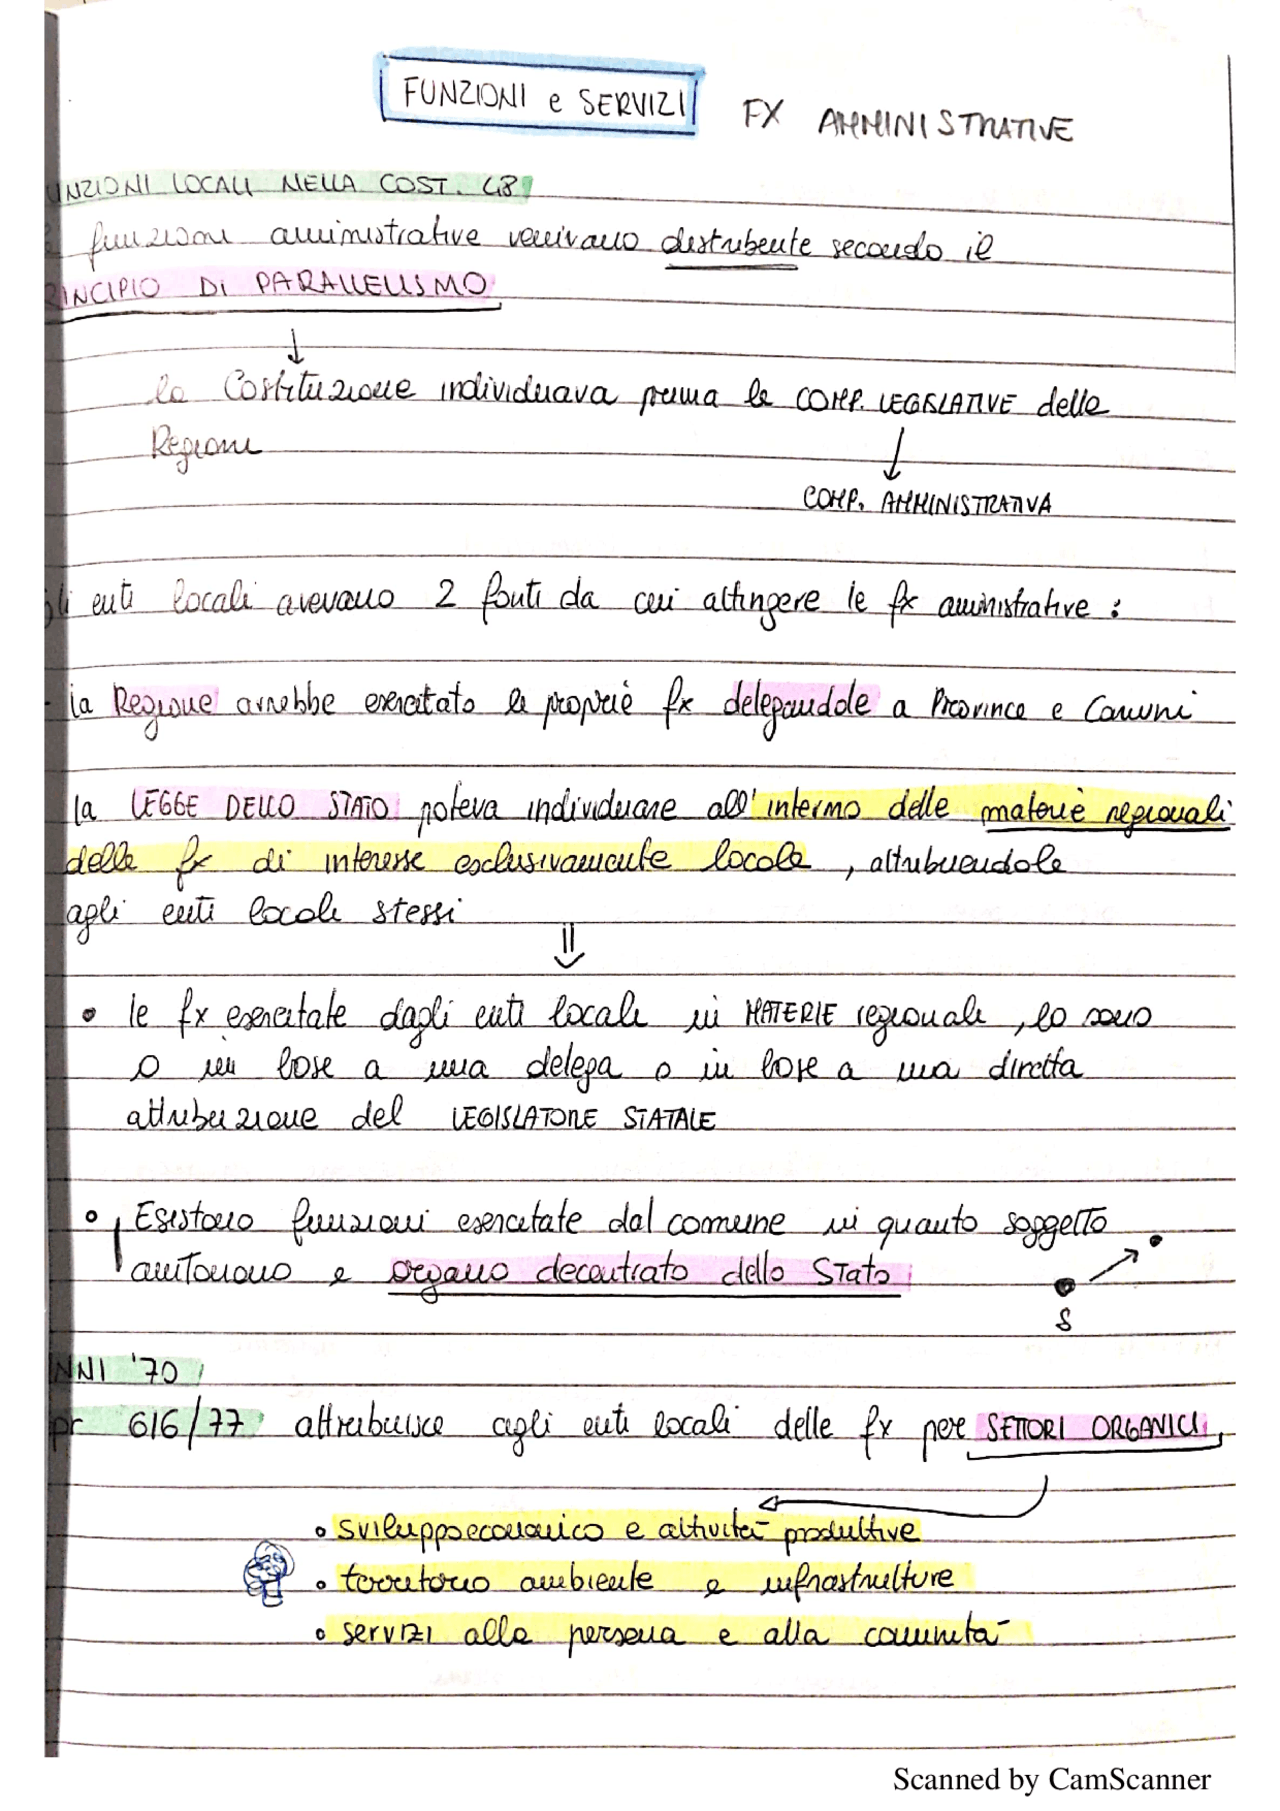 FUNZIONI e SERVIZI FX AMMINISTRATIVE
UNZIONI LOCALI NELLA COST. 48
funzioni amministrative venivano distribuente secondo il
RINCIPIO DI PARALLELISMO
↓
la Costituzione individuava prima le COMP. LEGISLATIVE delle
Regioni
↓
COMP. AMMINISTRATIVA
gli enti locali avevano 2 fonti da cui attingere le fx aministrative :
- la Regione avrebbe esercitato le proprie fx delegandole a Province e Comuni
la LEGGE DELLO STATO poteva individuare all'interno delle materie regionali
delle fx di interesse esclusivamente locale, attribuendole
agli enti locali stessi
⇓
• le fx esercitate dagli enti locali in MATERIE regionali, lo sono
o in base a una delega o in base a una diretta
attribuzione del LEGISLATORE STATALE
• Esistono funzioni esercitate dal comune in quanto soggetto
autonomo e organo decentrato dello Stato
S
NNI '70
pr 616/77 attribuisce agli enti locali delle fx per SETTORI ORGANICI
• sviluppo economico e attività produttive
• territorio ambiente e infrastrutture
• servizi alla persona e alla comunità
Scanned by CamScanner